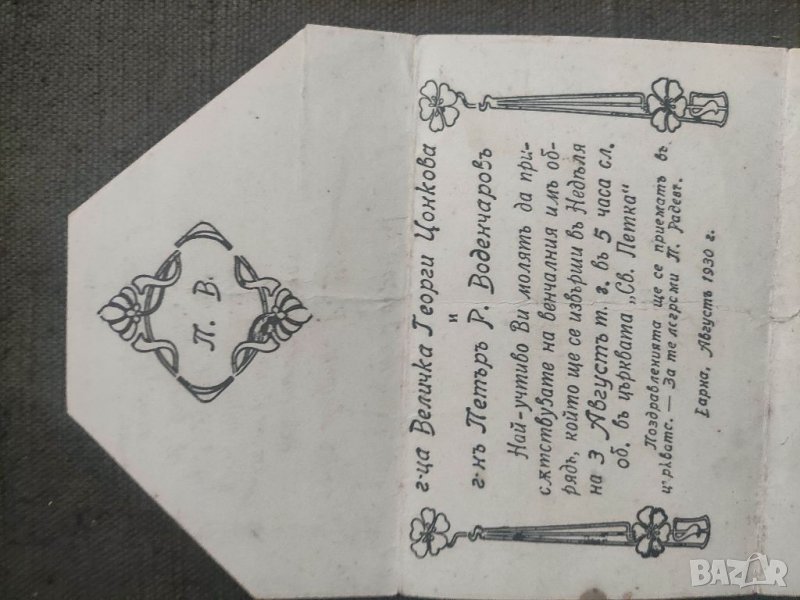 П. В.
г-ца Величка Георги Цонкова
и
г-нъ Петъръ Р. Воденчаровъ
Най-учтиво Ви молятъ да при-
сѫтствувате на венчалния имъ об-
рядъ, който ще се извърши въ Недѣля
на 3 Августъ т. г. въ 5 часа сл.
об. въ църквата „Св. Петка"
Поздравленията ще се приематъ въ
църквата. — За телеграми П. Радевъ.
Варна, Августъ 1930 г.
BAZAR